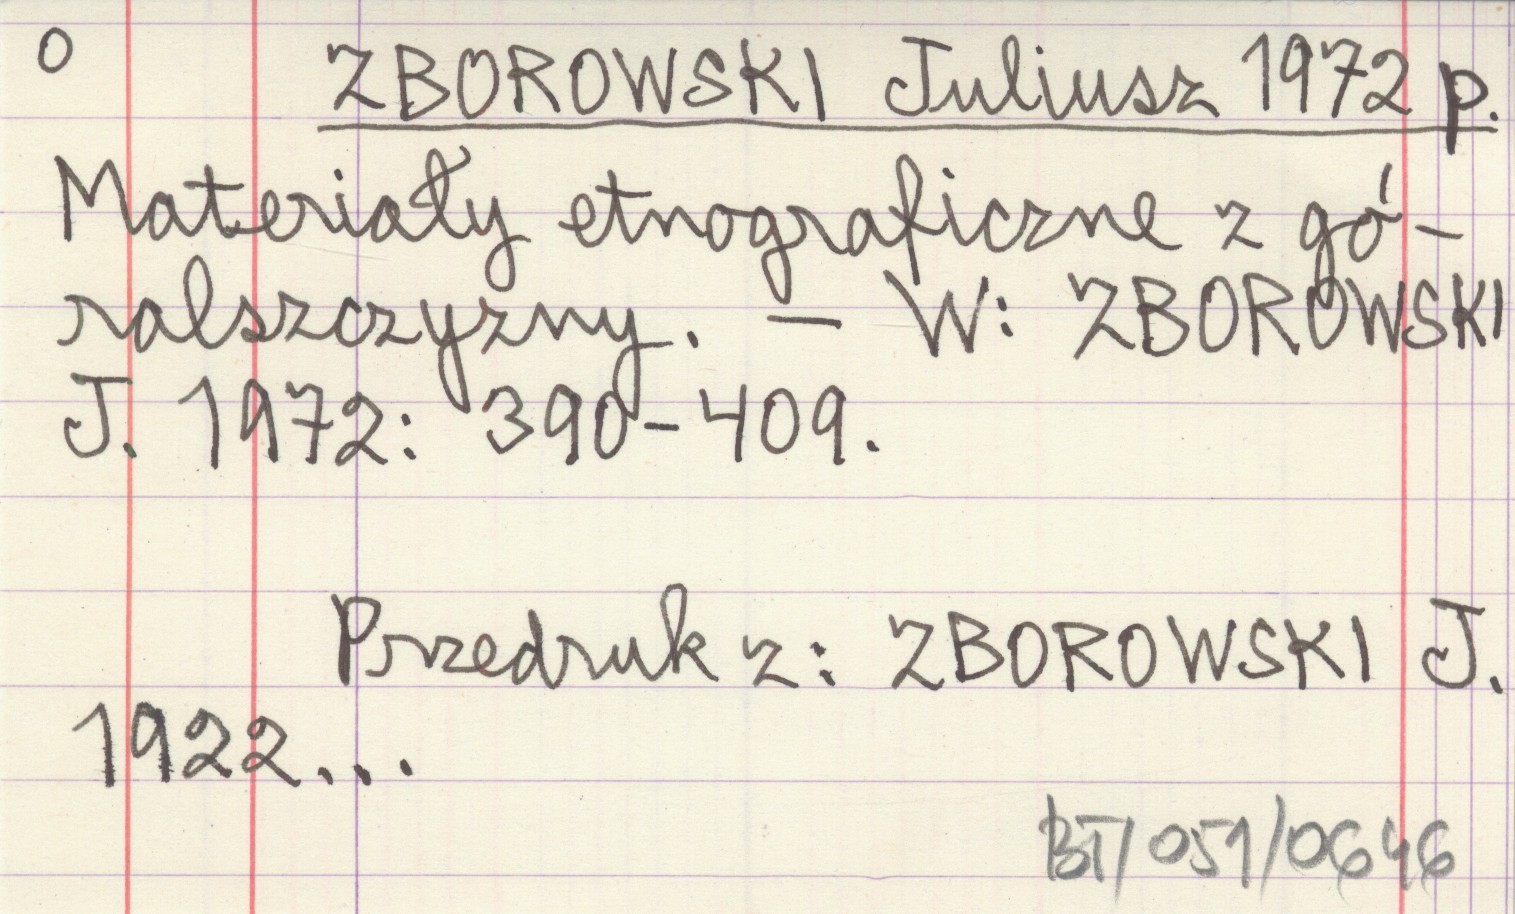 o ZBOROWSKI Juliusz 1972 p.
Materiały etnograficzne z gó-
ralszczyzny. — W: ZBOROWSKI
J. 1972: 390-409.
Przedruk z: ZBOROWSKI J.
1922...
BT/051/0646